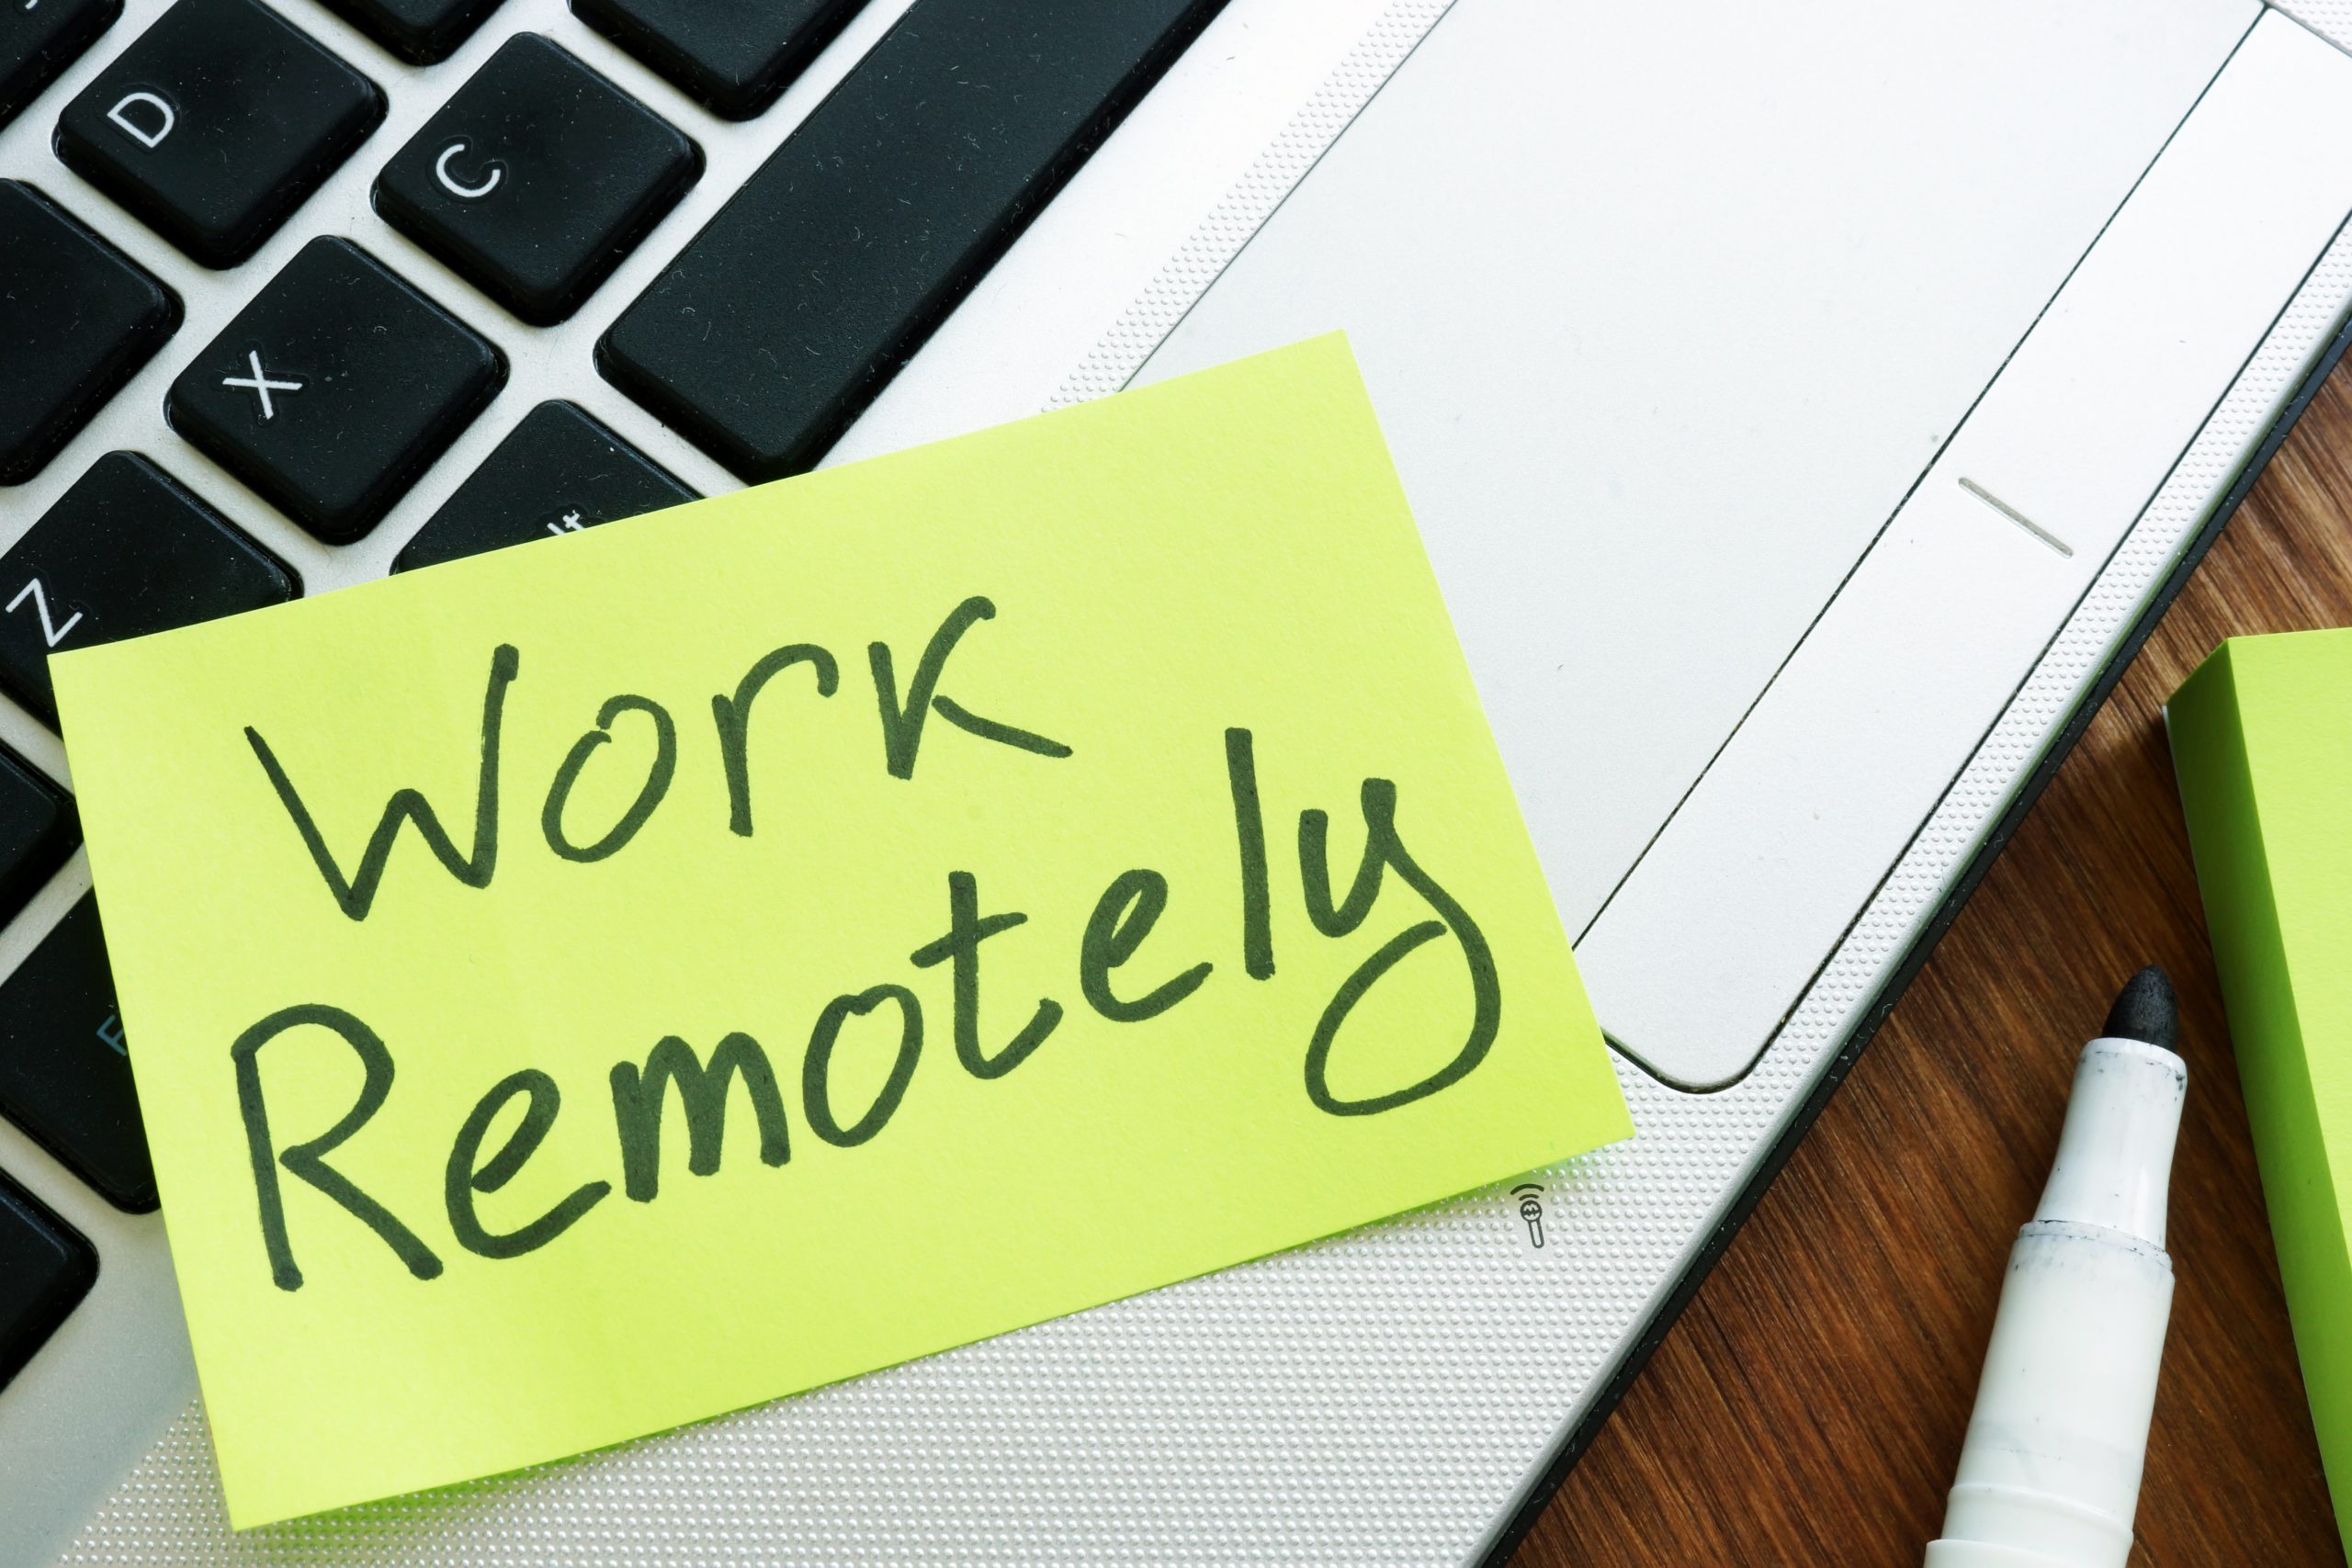 D
C
X
Z
Work
Remotely